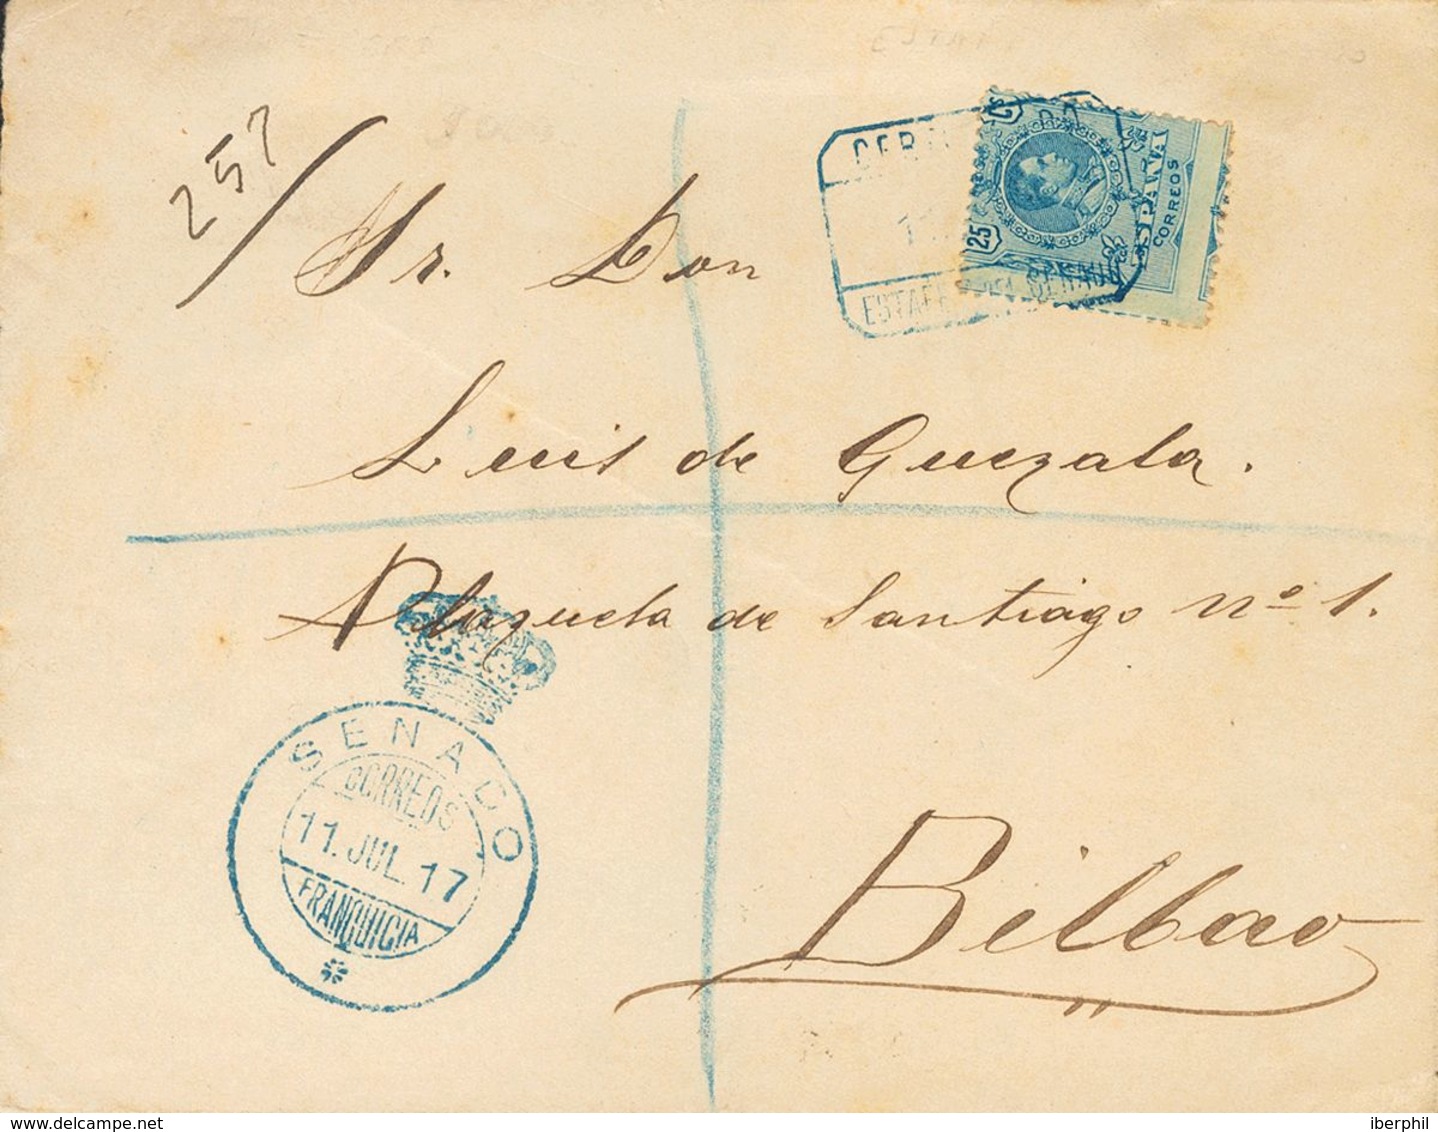 257
Sr. Don
CERTIFICADO
11
ESTAFETA DEL SENADO
25 C
ESPAÑA
CORREOS
Luis de Guezala.
Plazuela de Santiago nº 1.
Bilbao
SENADO
CORREOS
11. JUL. 17
FRANQUICIA
www.delcampe.net
iberphil